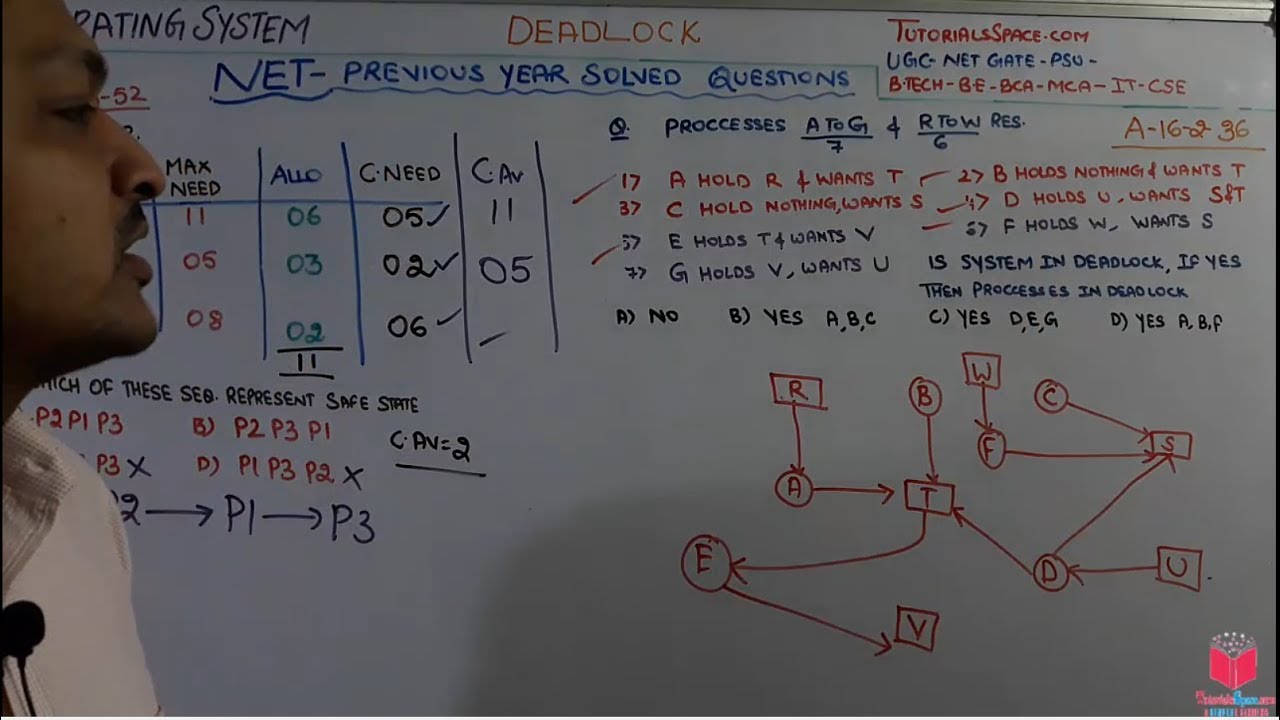 RATING SYSTEM
DEADLOCK
TUTORIALSSPACE.COM
UGC-NET GATE-PSU-
B.TECH-BE-BCA-MCA-IT-CSE
NET- PREVIOUS YEAR SOLVED QUESTIONS
-52
MAX NEED ALLO C.NEED C.AV
11 06 05✓ 11
05 03 02✓ 05
08 02 06✓ -
11
HICH OF THESE SEQ. REPRESENT SAFE STATE
P2 P1 P3 B) P2 P3 P1
P3 X D) P1 P3 P2 X
C.AV=2
2 → P1 → P3
Q. PROCCESSES A TO G & R TO W RES.
7 6
A-16-2-36
1) A HOLD R & WANTS T 2) B HOLDS NOTHING & WANTS T
3) C HOLD NOTHING, WANTS S 4) D HOLDS U, WANTS S&T
5) E HOLDS T & WANTS V 6) F HOLDS W, WANTS S
7) G HOLDS V, WANTS U IS SYSTEM IN DEADLOCK, IF YES
THEN PROCCESSES IN DEADLOCK
A) NO B) YES A,B,C C) YES D,E,G D) YES A,B,F
R B W C
F S
A T
E D U
V